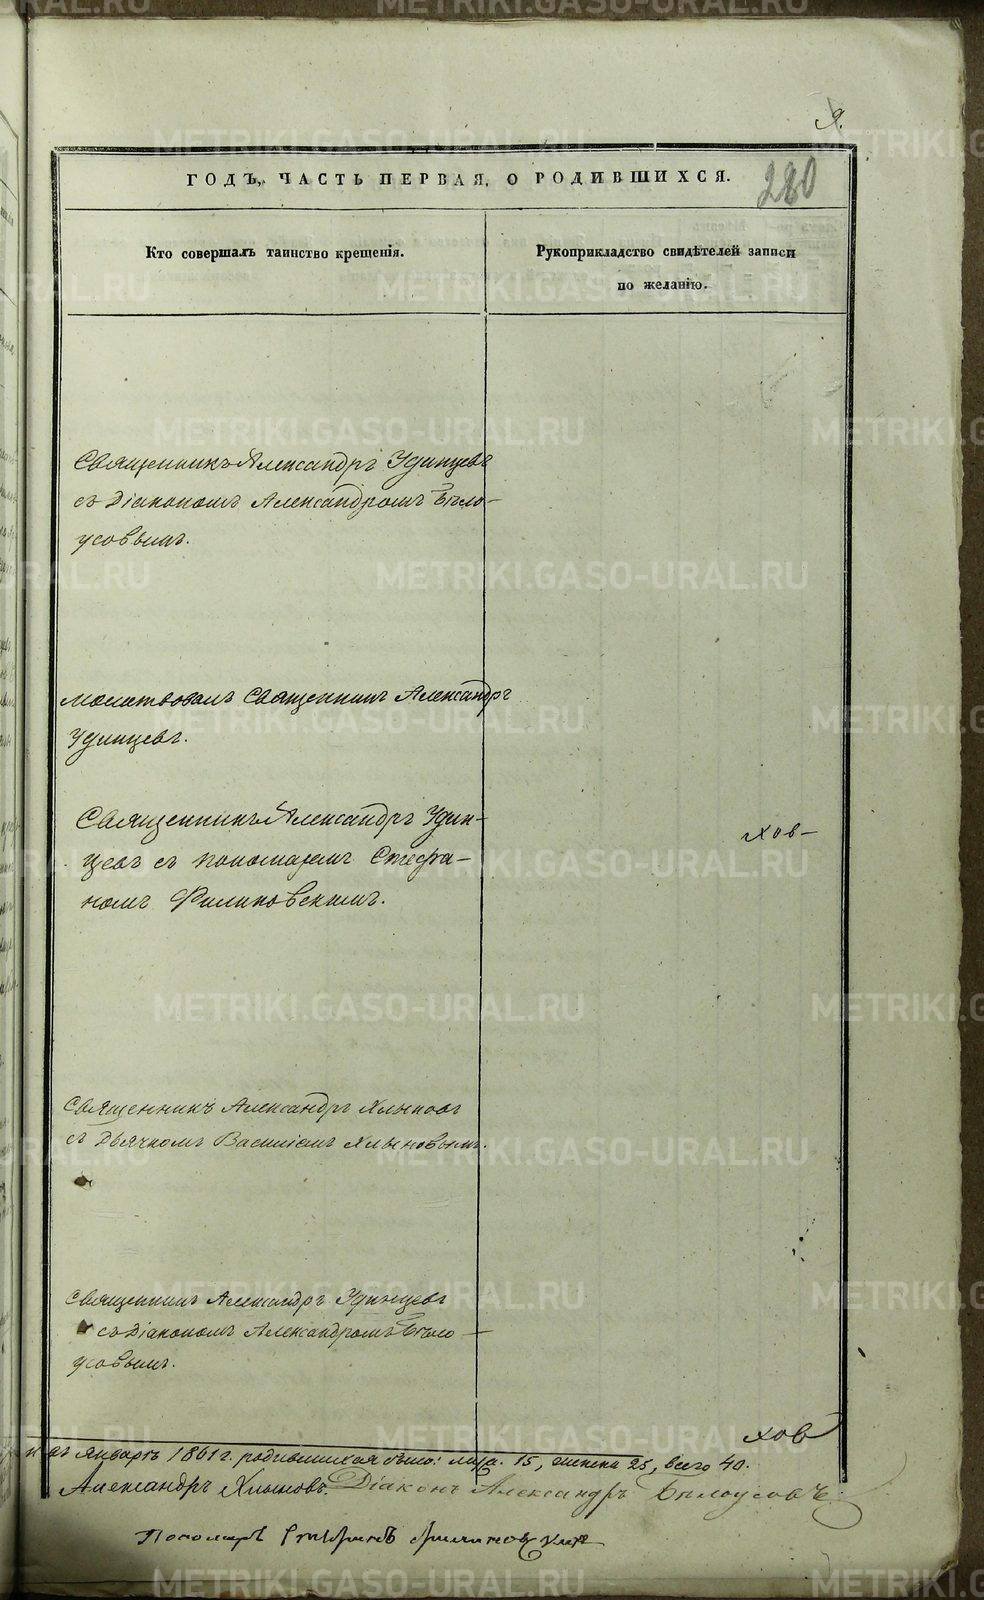 Я.
280
ГОДЪ, ЧАСТЬ ПЕРВАЯ, О РОДИВШИХСЯ.
Кто совершалъ таинство крещенія.
Рукоприкладство свидѣтелей записи
по желанію.
Священникъ Александръ Удинцевъ
съ Діакономъ Александромъ Бѣло-
усовымъ.
молитвовалъ Священникъ Александръ
Удинцевъ.
Священникъ Александръ Удин-
цевъ съ пономаремъ Стефа-
номъ Филиновскимъ.
хов-
Священникъ Александръ Хлыновъ
съ Дьячкомъ Василіемъ Хлыновымъ.
Священникъ Александръ Удинцевъ
съ Діакономъ Александромъ Бѣло-
усовымъ.
хов
въ Январѣ 1861 г. родившихся было: муж. 15, женска 25, всего 40.
Александръ Хлыновъ. Діаконъ Александръ Бѣлоусовъ.
Пономарь Стефанъ Филиновскій
METRIKI.GASO-URAL.RU